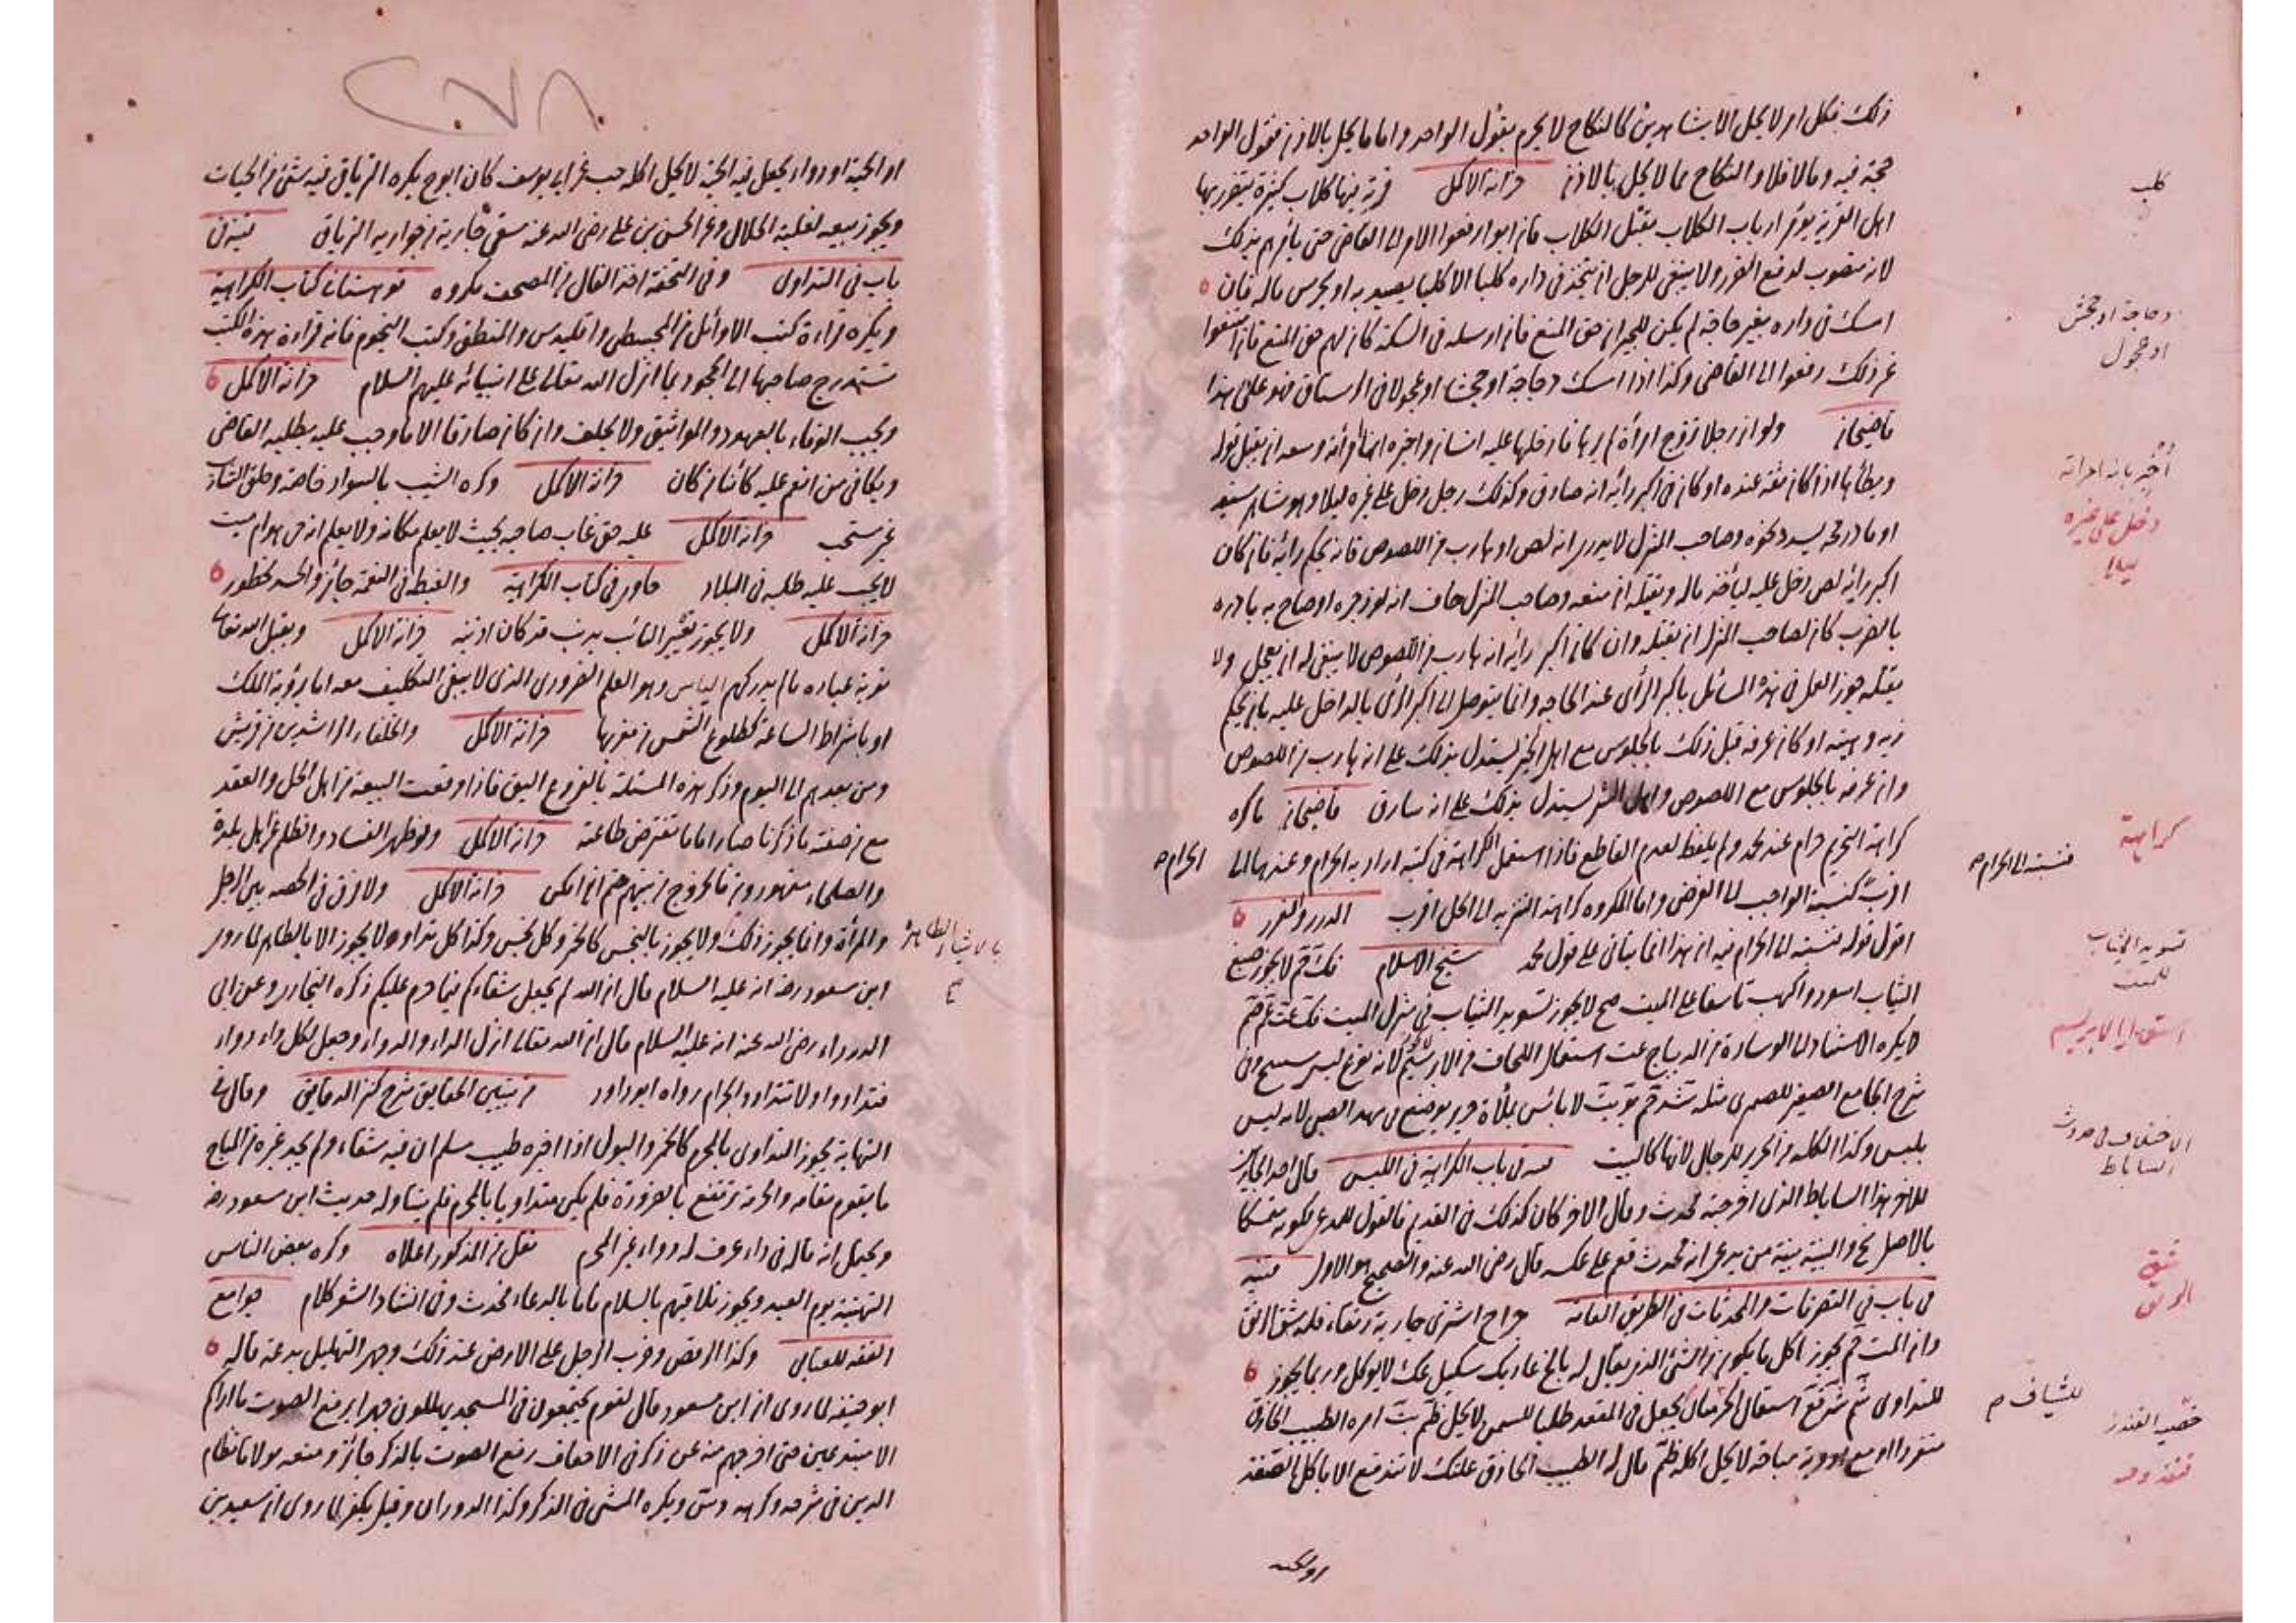 ذلك فكل امر لا يحل الا بشاهدين كالنكاح لا يحرم بقول الواحد واما ما يحل بالاذن فقول الواحد
حجة فيه وما لا فلا والنكاح مما لا يحل بالاذن خزانة الاكمل قرية فيها كلاب كثيرة يتضرر بها
اهل القرية يؤمر ارباب الكلاب بقتل الكلاب فان ابوا رفعوا الامر الى القاضي حتى يأمرهم بذلك
لانه منصوب لدفع الضرر ولا ينبغي للرجل ان يتخذ في داره كلبا الا كلبا يصيد به او يحرس ماله فان
امسك في داره بغير حاجة لم يكن للجيران حق المنع فان ارسله في السكة كان لهم حق المنع فان امتنعوا
عن ذلك رفعوا الى القاضي وكذا اذا امسك دجاجة او جحشا او عجولا في الرستاق فهو على هذا
قاضيخان ولو ان رجلا تزوج امرأة لم يرها فادخلها عليه انسان واخبره انها امرأته وسعه ان يقبل قوله
ويطأها اذا كان ثقة عنده او كان في اكبر رأيه انه صادق وكذلك رجل دخل على غيره ليلا وهو شاهر سيفه
او مادّ رمحه يسدد نحوه وصاحب المنزل لا يدري انه لص او هارب من اللصوص فانه يحكم رأيه فان كان
اكبر رأيه لص دخل عليه ليأخذ ماله ويقتله ان منعه وصاحب المنزل خاف انه لو زجره او صاح به بادره
بالضرب كان لصاحب المنزل ان يقتله وان كان اكبر رأيه انه هارب من اللصوص لا ينبغي له ان يعجل ولا
يقتله جوز العمل في هذه المسائل باكبر الرأي عند الحاجة وانما يتوصل الى اكبر الرأي بالداخل عليه بان يحكم
زيه وهيئته او كان عرفه قبل ذلك بالجلوس مع اهل الخير يستدل بذلك على انه هارب من اللصوص
وان عرفه بالجلوس مع اللصوص واهل الشر يستدل بذلك على انه سارق قاضيخان ما كره
كراهة التحريم حرام عند محمد ولم يلفظ لعدم القاطع فاذا استعمل الكراهة في كتبه اراد به الحرام وعندهما الى الحرام
اقرب كنسبة الواجب الى الفرض واما المكروه كراهة التنزيه الى الحل اقرب الدرر والغرر
اقول قوله فنسبته الى الحرام فيه ان هذا انما يتأتى على قول محمد شيخ الاسلام لا يجوز صبغ
الثياب اسود واكهب تأسفا على الميت صح لا يجوز تسويد الثياب في منزل الميت
لا يكره الاستناد الى الوسادة من الديباج عت استعمال اللحاف من الابريسم لانه نوع لبس
شرح الجامع الصغير مثله لا بأس بملأة حرير يوضع في مهد الصبي لانه ليس
بلبس وكذا الكلة من الحرير للرجال لانها كالبيت في باب الكراهية في اللبس قال احد الجارين
للاخر هذا الساباط الذي اخرجته محدث وقال الاخر كان كذلك في القديم فالقول للمدعي لكونه متمسكا
بالاصل والبينة بينة من يدعي انه محدث على عكسه قال رضي الله عنه والصحيح هو الاول قنية
في باب في التصرفات والمحدثات في الطريق العامة اشترى جارية رتقاء فله شق الرتق
وان المت يجوز اكل ما يكون من الشيء الذي يقال له لا يوكل وربما يجوز
للتداوي استعمال يجعل في المقعد طلبا للسمن لا يحل امره الطبيب الحاذق
منفردا او مع ادوية مباحة لا يحل اكله قال له الطبيب الحاذق علتك لا تندفع الا باكل القنفذ
او الحية
كلب
دجاجة او جحش
او عجول
اخبر بانه امرأته
دخل على غيره
ليلا
كراهة
فنسبته الى الحرام
تسويد الثياب
للميت
استعمال الابريسم
الاختلاف في حدوث
الساباط
شق
الرتق
للشياف
قنفذ وحية
٢٧٨
او الحية او دواء يجعل فيه الحية لا يحل اكله عن ابي يوسف كان ابو ح يكره الترياق فيه شيء من الحيات
ويجوز بيعه لغلبة الحلال وعن الحسن بن علي رضي الله عنه سقى جارية من جواريه الترياق قنية في
باب في التداوي وفي التحفة اخذ الفال من المصحف مكروه قهستاني كتاب الكراهية
ويكره قراءة كتب الاوائل من المجسطي واقليدس والمنطق وكتب النجوم فانه قراءة هذه الكتب
تستدرج صاحبها الى الجحود بما انزل الله تعالى على انبيائه عليهم السلام خزانة الاكمل
ويجب الوفاء بالعهود والمواثيق ولا يحلف وان كان صادقا الا ما وجب عليه يطلبه القاضي
ويكافي من انعم عليه كائنا من كان خزانة الاكمل وكره الشيب بالسواد خاصة وحلق الشارب
غير مستحب خزانة الاكمل عليه حق غاب صاحبه بحيث لا يعلم مكانه ولا يعلم انه حي هو ام ميت
لا يجب عليه طلبه في البلاد حاوي في كتاب الكراهية والغبطة في النعمة جائز والحسد محظور
خزانة الاكمل ولا يجوز تعيير التائب بذنب قد كان اذنبه خزانة الاكمل ويقبل الله تعالى
توبة عباده ما لم يدركهم الياس وهو العلم الضروري الذي لا يبقى التكليف معه اما رؤية الملك
او باشراط الساعة كطلوع الشمس من مغربها خزانة الاكمل والخلفاء الراشدين من قريش
ومن بعدهم الى اليوم وذكر هذه المسئلة بالفروع اليق فاذا وقعت البيعة من اهل الحل والعقد
مع من صفته ما ذكرنا صار اماما تفترض طاعته خزانة الاكمل ولو ظهر الفساد والظلم من اهل بلدة
والصلحاء مقهورون فالخروج من بينهم حتم ان امكن خزانة الاكمل ولا فرق في الحقنة بين الرجل
والمرأة وانما يجوز ذلك ولا يجوز بالنجس كالخمر وكل نجس وكذا كل تداو ولا يجوز الا بالطاهر لما روى
بالاشياء الطاهرة
صح
ابن مسعود رضي انه عليه السلام قال ان الله لم يجعل شفاءكم فيما حرم عليكم ذكره البخاري وعن ابي
الدرداء رضي الله عنه انه عليه السلام قال ان الله تعالى انزل الداء والدواء وجعل لكل داء دواء
فتداووا ولا تتداووا بحرام رواه ابو داود من تبيين الحقايق شرح كنز الدقايق وقال في
النهاية يجوز التداوي بالمحرم كالخمر والبول اذا اخبره طبيب مسلم ان فيه شفاء ولم يجد غيره من المباح
ما يقوم مقامه والحرمة ترتفع بالضرورة فلم يكن متداويا بالحرام فلم يتناوله حديث ابن مسعود رضي
ويحتمل انه قاله في داء عرف له دواء غير المحرم نقل من المذكور اعلاه وكره بعض الناس
التهنئة يوم العيد ويجوز تلاقيهم بالسلام فاما بالدعاء فمحدث وفي انشاد الشعر كلام جوامع
الفقه للعتابي وكذا الرقص وضرب الرجل على الارض عند ذلك وجهر التهليل بدعة قاله
ابو حنيفة لما روي ان ابن مسعود قال لقوم يجتمعون في المسجد يهللون جهرا برفع الصوت ما اراكم
الا مبتدعين حتى اخرجهم منه عن ذكر في الاحقاف رفع الصوت بالذكر جائز ومنعه مولانا نظام
الدين في شرحه وكرهه ويكره المشي في الذكر وكذا الدوران وقيل يكفر لما روي ان سعيد بن